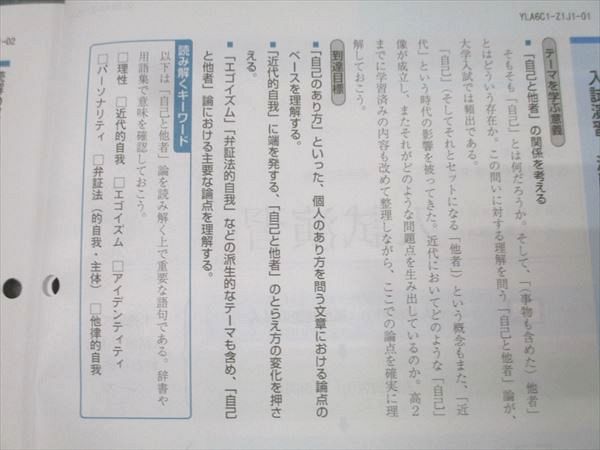 YLA6C1-Z1J1-01
-02
テーマを学ぶ意義
■「自己と他者」の関係を考える
そもそも「自己」とは何だろうか。そして、「（事物も含めた）他者」
とはどういう存在か。この問いに対する理解を問う「自己と他者」論が、
大学入試では頻出である。
「自己」（そしてそれとセットになる「他者」）という概念もまた、「近
代」という時代の影響を被ってきた。近代においてどのような「自己」
像が成立し、またそれがどのような問題点を生み出しているのか。高２
までに学習済みの内容も改めて整理しながら、ここでの論点を確実に理
解しておこう。
到達目標
■「自己のあり方」といった、個人のあり方を問う文章における論点の
ベースを理解する。
■「近代的自我」に端を発する、「自己と他者」のとらえ方の変化を押さ
える。
■「エゴイズム」「弁証法的自我」などの派生的なテーマも含め、「自己
と他者」論における主要な論点を理解する。
読み解くキーワード
以下は「自己と他者」論を読み解く上で重要な語句である。辞書や
用語集で意味を確認しておこう。
□理性　□近代的自我　□エゴイズム　□アイデンティティ
□パーソナリティ　□弁証法（的自我・主体）　□他律的自我